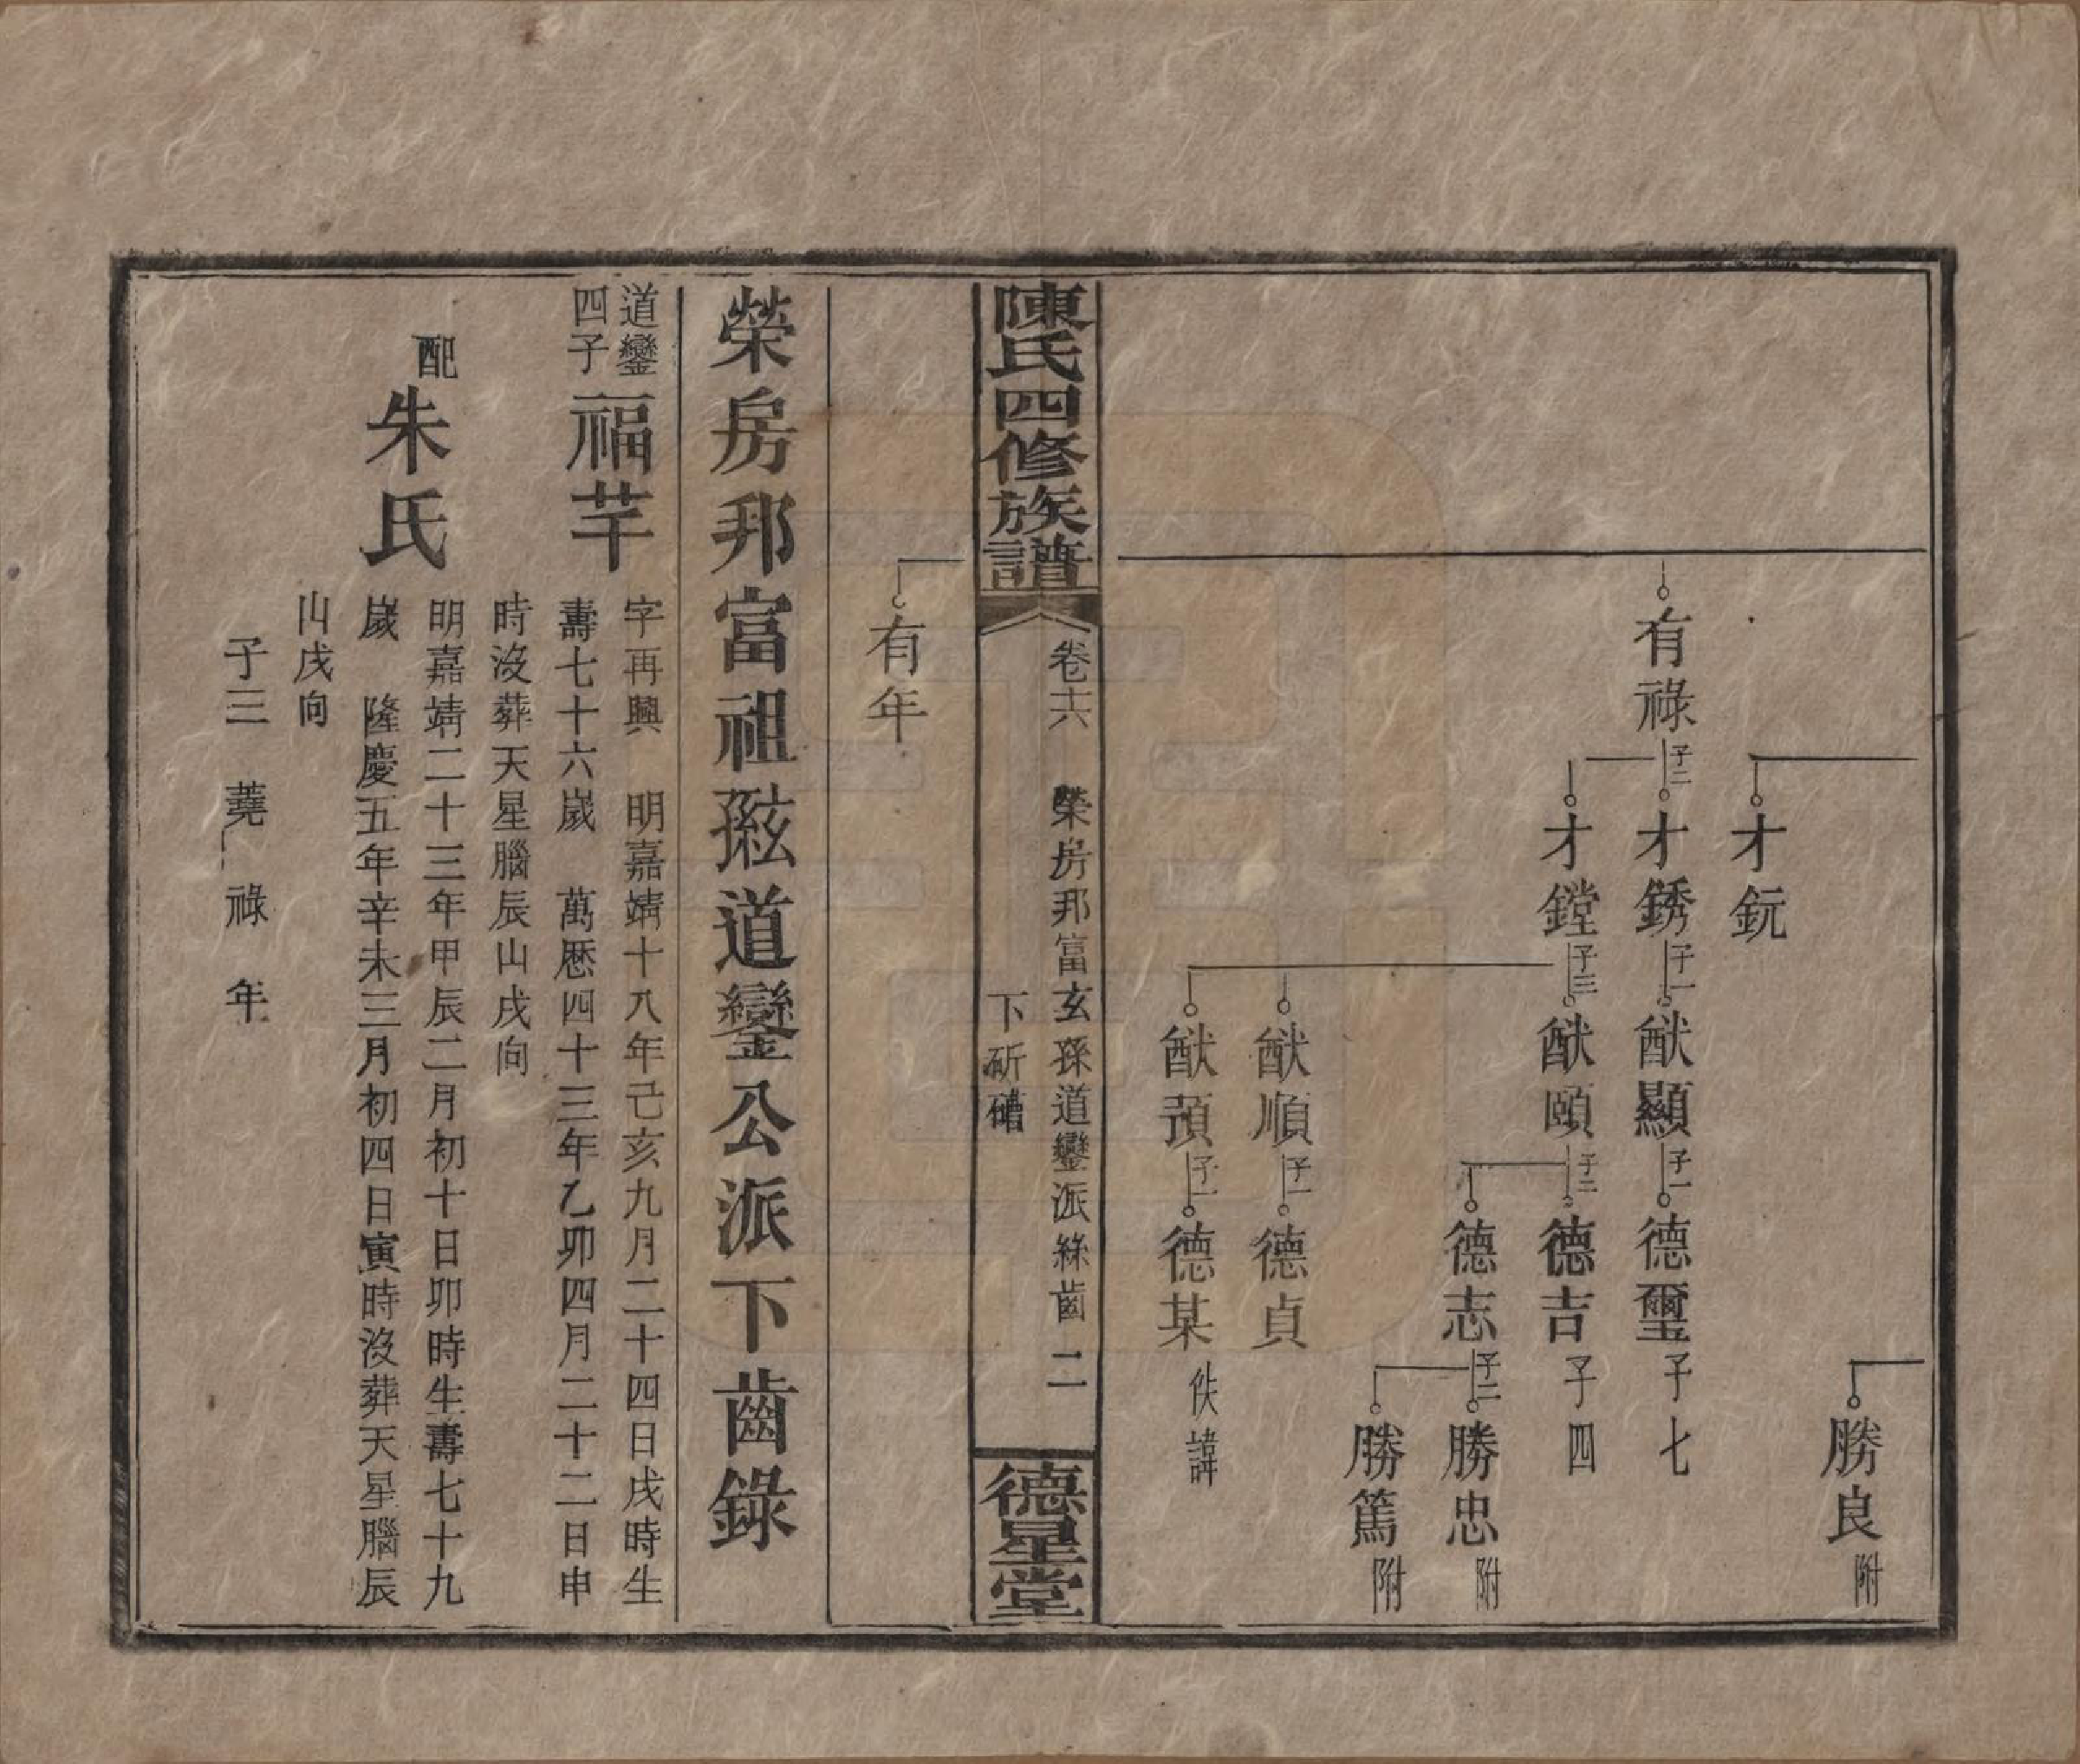 勝良 附
才鈨
有祿 子二
才銹 子一
猷顯 子一
德璽 子七
才鏜 子三
猷頤 子二
德吉 子四
德志 子二
勝忠 附
勝篤 附
猷順 子一
德貞
猷頇 子一
德某 佚諱
陳氏四修族譜
卷十六 榮房邦富玄孫道鑾派絲齒 二
下斫磳
德星堂
有年
榮房邦富祖玄孫道鑾公派下齒錄
道鑾
四子
福芊
字再興 明嘉靖十八年己亥九月二十四日戌時生
壽七十六歲 萬厯四十三年乙卯四月二十二日申
時沒葬天星腦辰山戌向
配
朱氏
明嘉靖二十三年甲辰二月初十日卯時生壽七十九
歲 隆慶五年辛未三月初四日寅時沒葬天星腦辰
山戌向
子三 蕘 祿 年